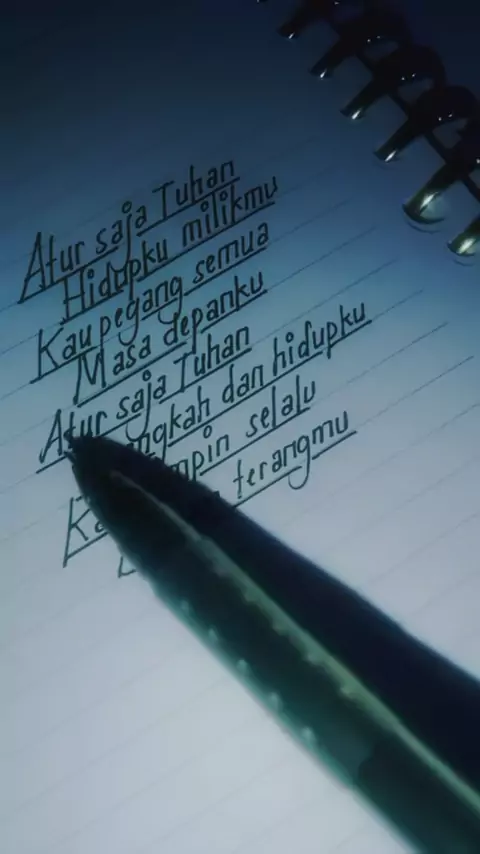 Atur saja Tuhan
Hidupku milikmu
Kau pegang semua
Masa depanku
Atur saja Tuhan
dan hidupku
selalu
terangmu